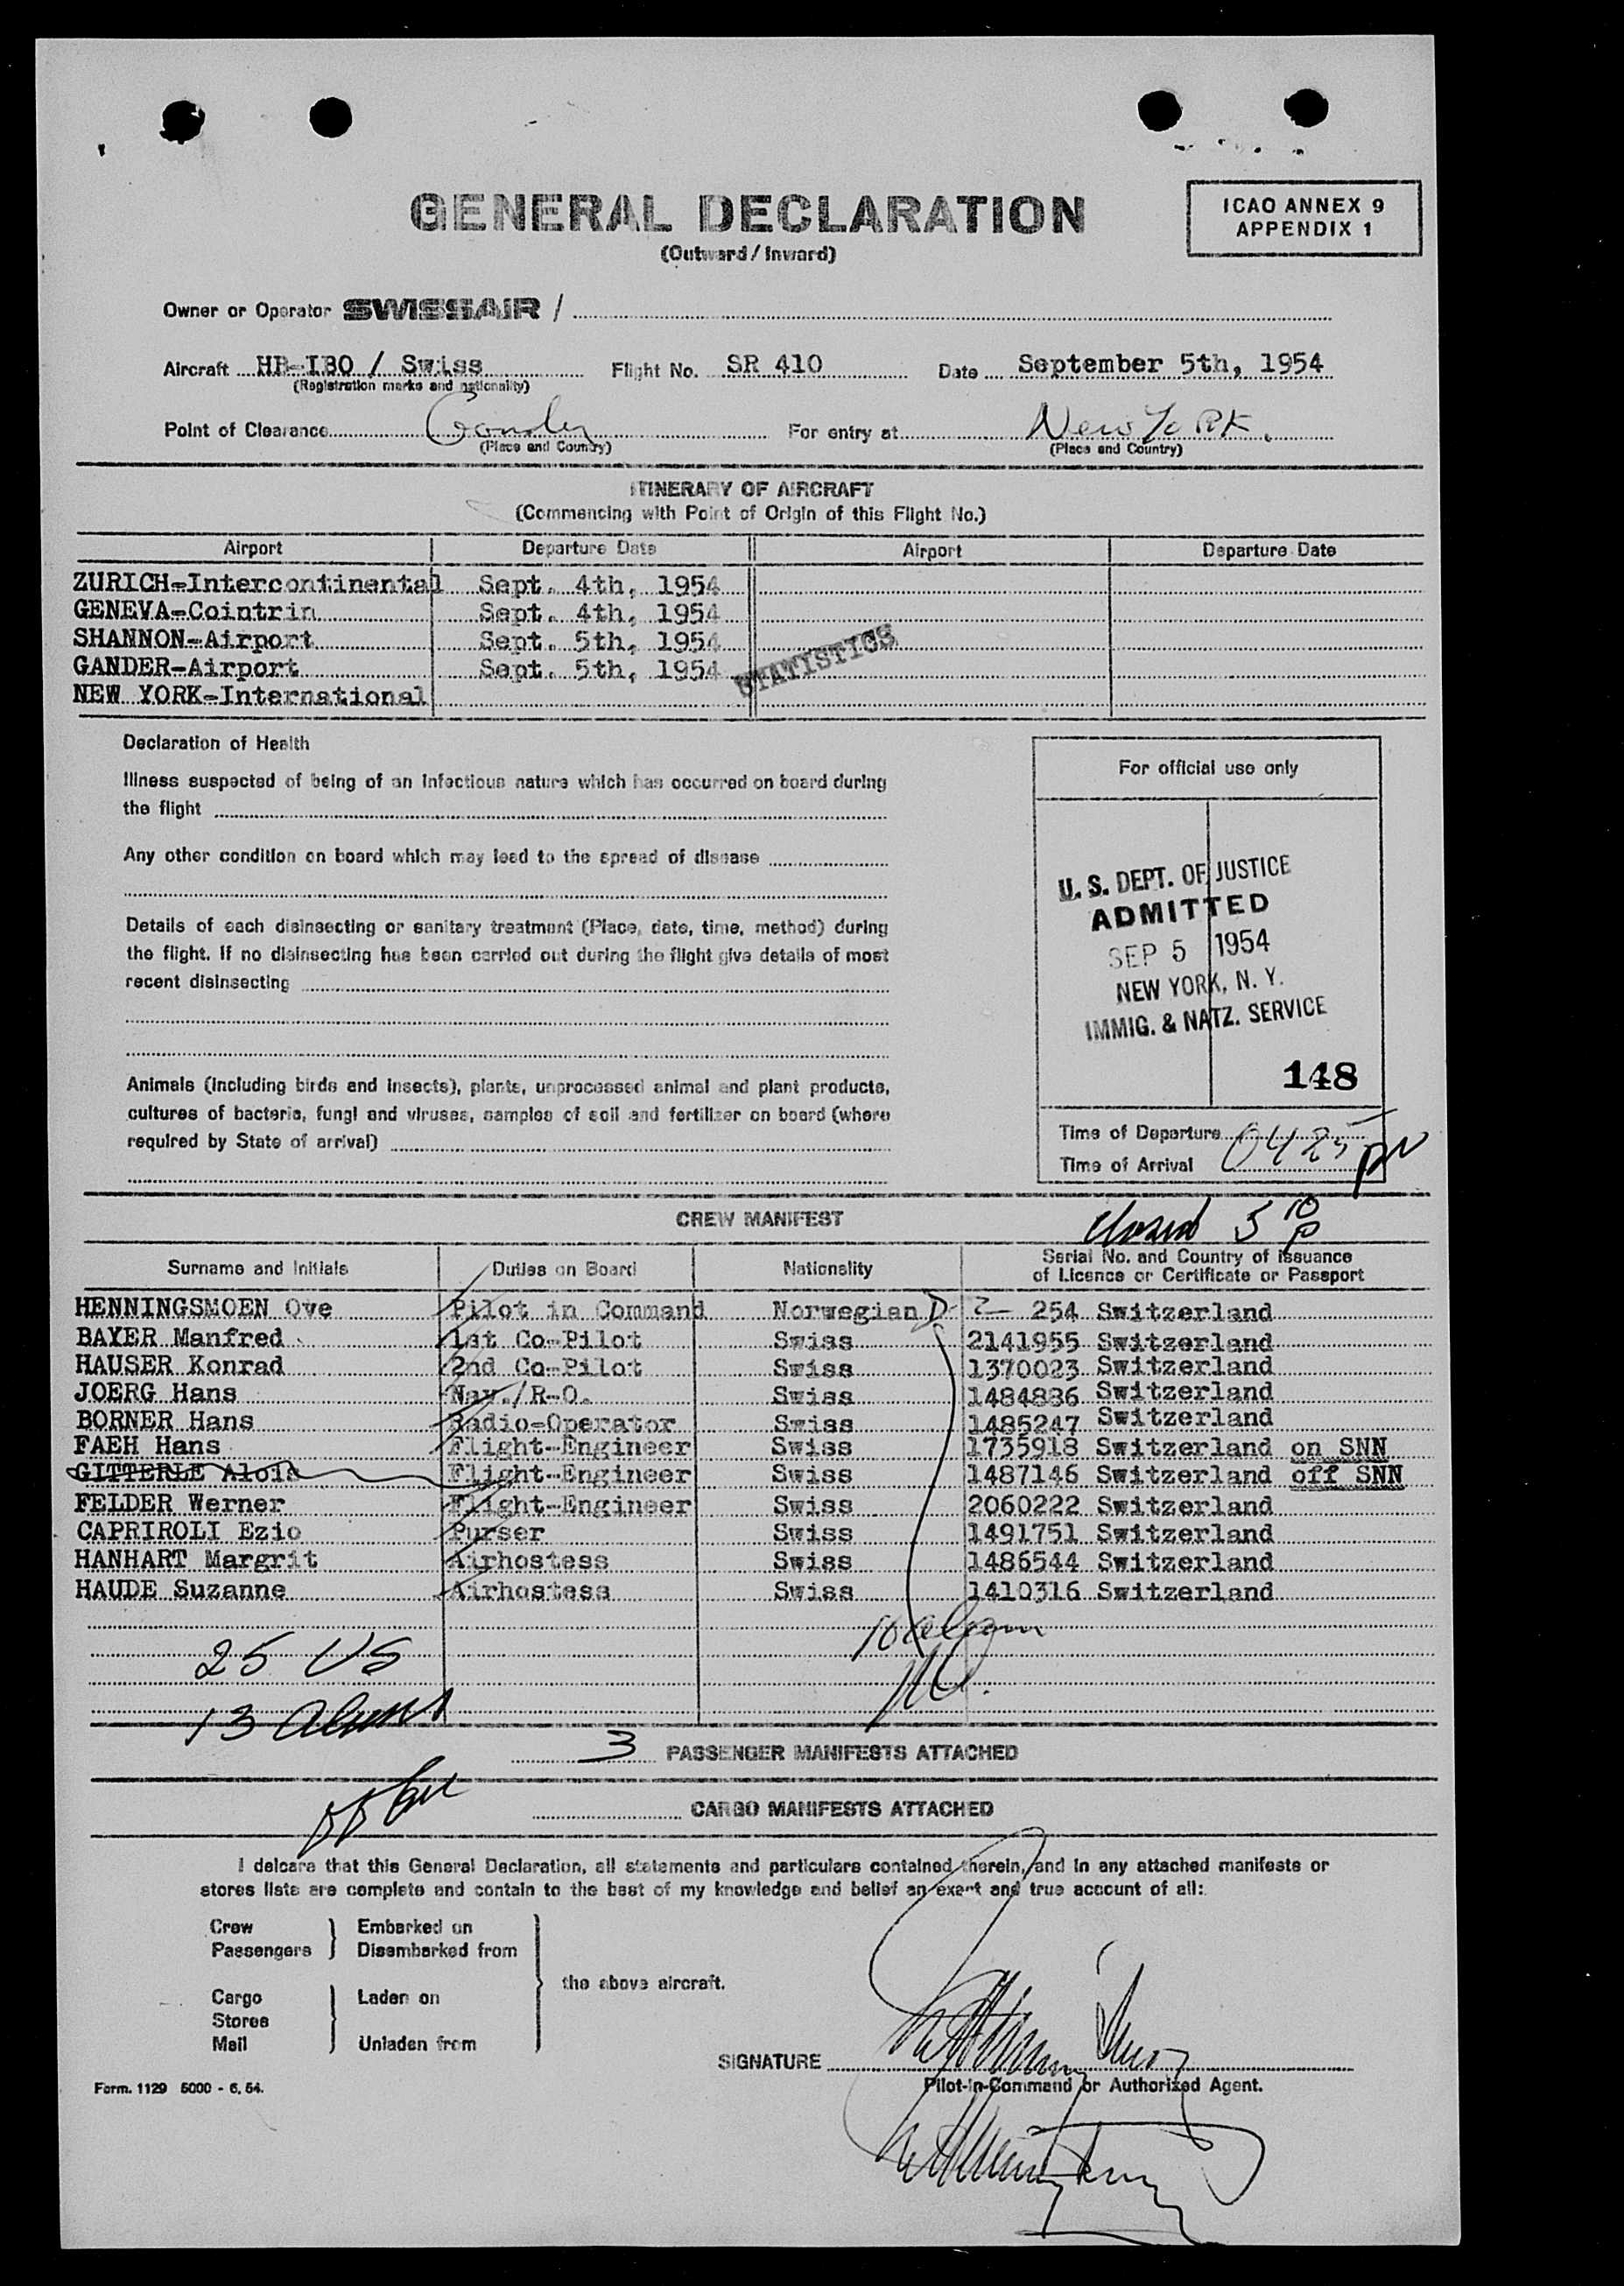 GENERAL DECLARATION
(Outward / Inward)
ICAO ANNEX 9
APPENDIX 1
Owner or Operator SWISSAIR /
Aircraft HB-IBO / Swiss Flight No. SR 410 Date September 5th, 1954
(Registration marks and nationality)
Point of Clearance Gander For entry at New York.
(Place and Country) (Place and Country)
ITINERARY OF AIRCRAFT
(Commencing with Point of Origin of this Flight No.)
Airport Departure Date Airport Departure Date
ZURICH-Intercontinental Sept. 4th, 1954
GENEVA-Cointrin Sept. 4th, 1954
SHANNON-Airport Sept. 5th, 1954
GANDER-Airport Sept. 5th, 1954
STATISTICS
NEW YORK-International
Declaration of Health
Illness suspected of being of an infectious nature which has occurred on board during
the flight
Any other condition on board which may lead to the spread of disease
Details of each disinsecting or sanitary treatment (Place, date, time, method) during
the flight. If no disinsecting has been carried out during the flight give details of most
recent disinsecting
Animals (including birds and insects), plants, unprocessed animal and plant products,
cultures of bacteria, fungi and viruses, samples of soil and fertilizer on board (where
required by State of arrival)
For official use only
U. S. DEPT. OF JUSTICE
ADMITTED
SEP 5 1954
NEW YORK, N. Y.
IMMIG. & NATZ. SERVICE
148
Time of Departure
Time of Arrival 0425 pm
closed 5 10 p
CREW MANIFEST
Surname and Initials Duties on Board Nationality Serial No. and Country of Issuance
of Licence or Certificate or Passport
HENNINGSMOEN Ove Pilot in Command Norwegian D 2 - 254 Switzerland
BAYER Manfred 1st Co-Pilot Swiss 2141955 Switzerland
HAUSER Konrad 2nd Co-Pilot Swiss 1370023 Switzerland
JOERG Hans Nav./R-O. Swiss 1484886 Switzerland
BORNER Hans Radio-Operator Swiss 1485247 Switzerland
FAEH Hans Flight-Engineer Swiss 1735918 Switzerland on SNN
GITTERLE Alois Flight-Engineer Swiss 1487146 Switzerland off SNN
FELDER Werner Flight-Engineer Swiss 2060222 Switzerland
CAPRIROLI Ezio Purser Swiss 1491751 Switzerland
HANHART Margrit Airhostess Swiss 1486544 Switzerland
HAUDE Suzanne Airhostess Swiss 1410316 Switzerland
25 US
13 Aliens
3 PASSENGER MANIFESTS ATTACHED
CARGO MANIFESTS ATTACHED
I delcare that this General Declaration, all statements and particulars contained therein, and in any attached manifests or
stores lists are complete and contain to the best of my knowledge and belief an exact and true account of all:
Crew Embarked on
Passengers Disembarked from
the above aircraft.
Cargo Laden on
Stores
Mail Unladen from
SIGNATURE
Pilot-in-Command or Authorized Agent.
Form. 1129 5000 - 6. 54.